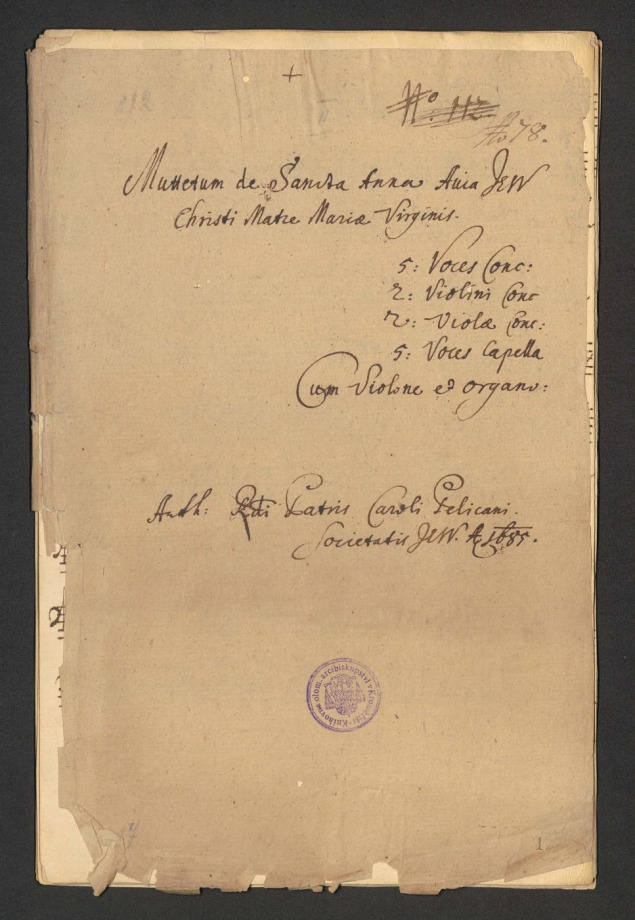 +
No. 112.
No 78.
Muttetum de Sancta Anna Auia JESV
Christi Matre Mariæ Virginis.
5: Voces Conc:
2: Violini Conc
2: Violæ Conc:
5: Voces Capella
Cum Violone et Organo:
Auth: Rdi Patris Caroli Pelicani.
Societatis JESV. A 1685.
Knihovna olom. arcibiskupství v Kroměříži
1